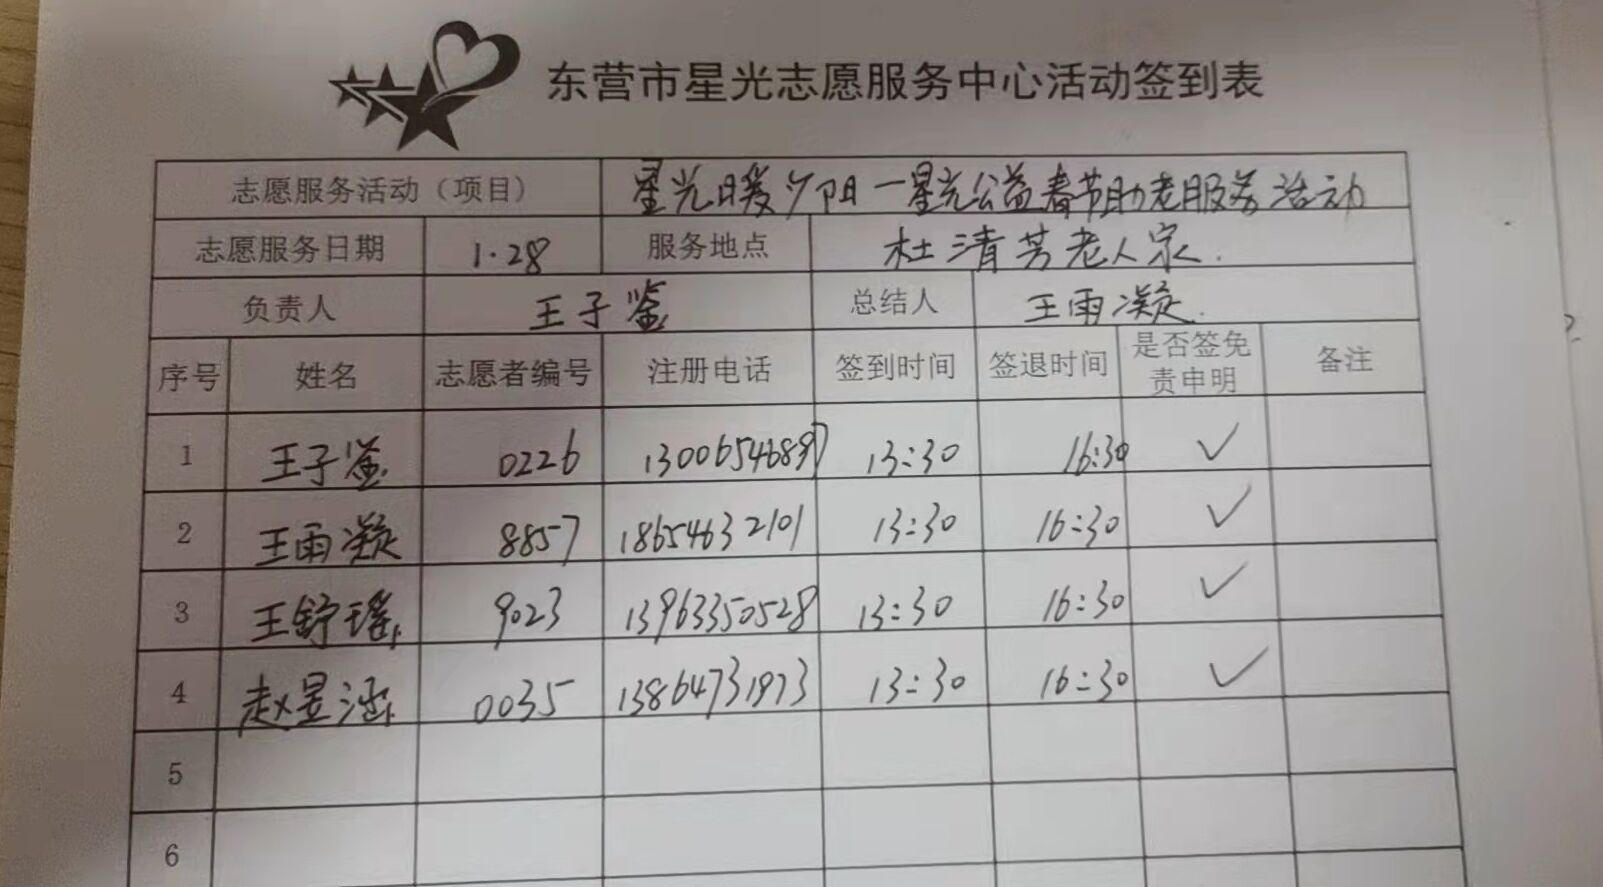 东营市星光志愿服务中心活动签到表
志愿服务活动（项目） 星光暖夕阳一星光公益春节助老服务活动
志愿服务日期 1.28 服务地点 杜清芳老人家.
负责人 王子鉴 总结人 王雨凝.
序号 姓名 志愿者编号 注册电话 签到时间 签退时间 是否签免责申明 备注
1 王子鉴 0226 13:30 16:30 ✓
2 王雨凝 8857 18654632101 13:30 16:30 ✓
3 王舒瑶 9023 13963350528 13:30 16:30 ✓
4 赵昱涵 0035 13864731973 13:30 16:30 ✓
5
6